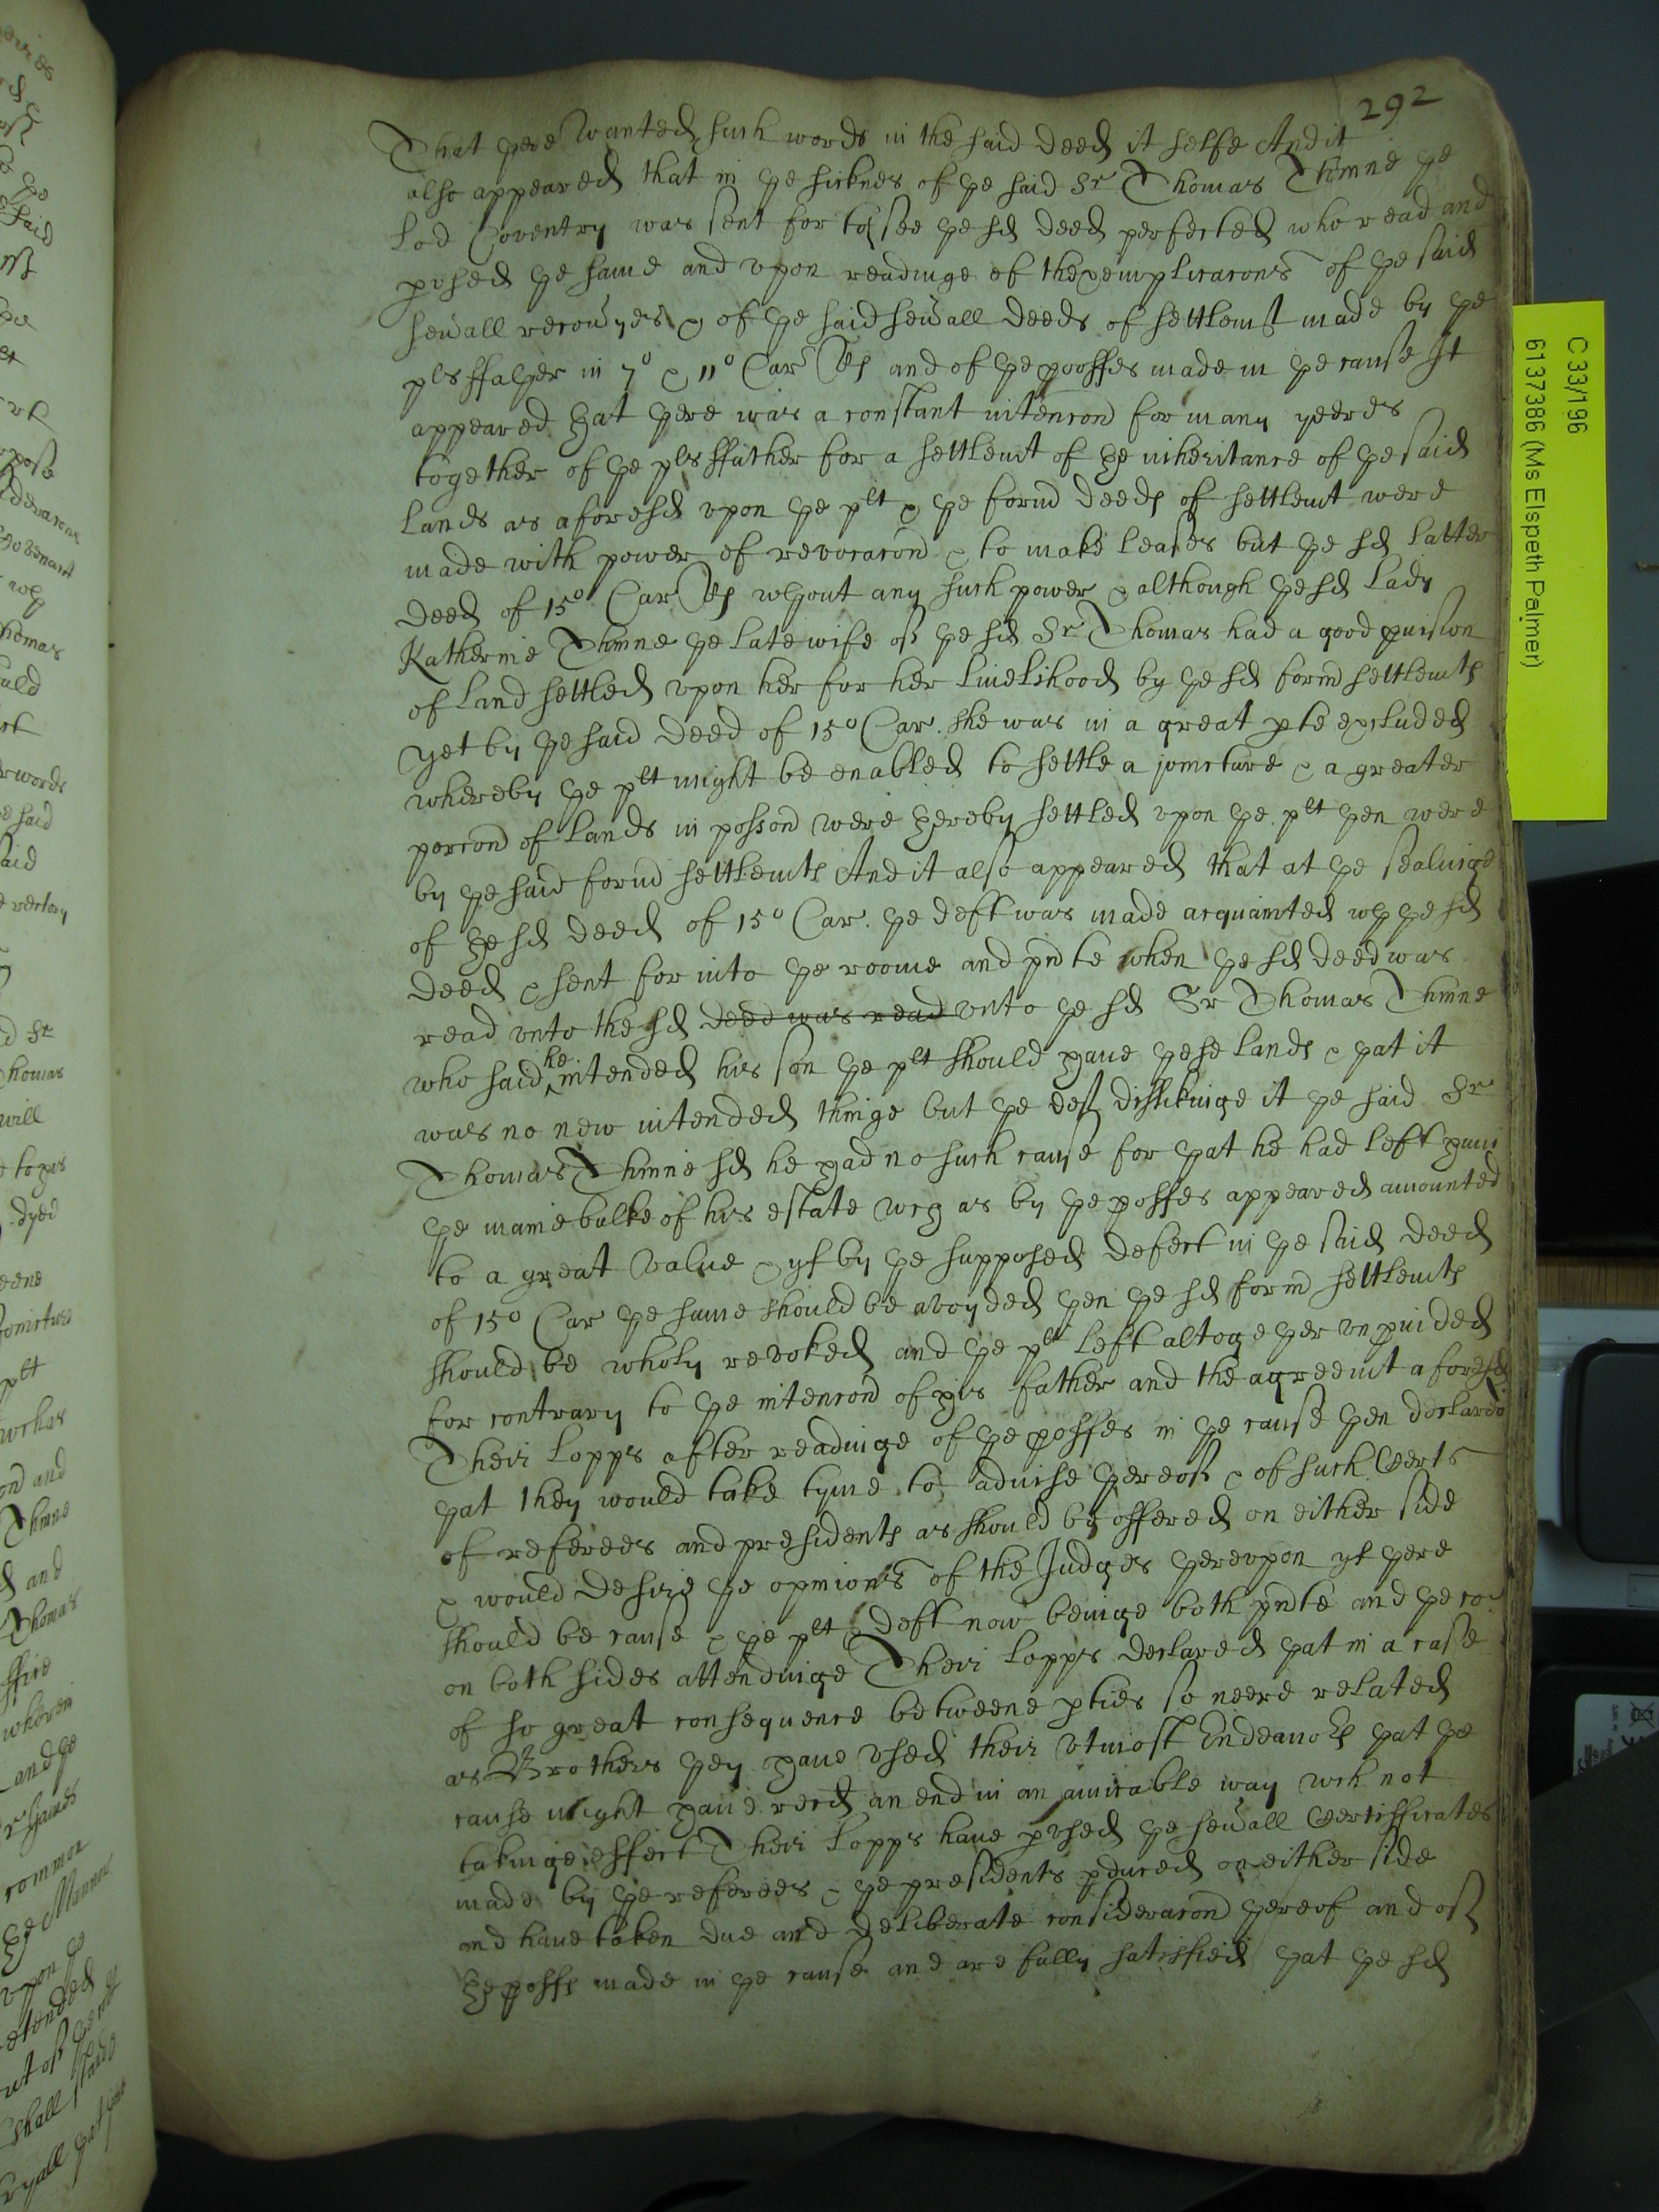 292
That there wanted such words in the said deed it selfe And it
also appeared that in the sicknes of the said Sr Thomas Thinne the
Lod Coventry was sent for to see the sd deed perfected who read and
pvsed the same and vpon readinge of the exemplificacons of the said
sevall recovyes & of the said sevall deeds of settlemt made by the
plts ffather in 7o & 11o Car Rs and of the prooffes made in the cause It
appeared that there was a constant intencon for many yeeres
together of the plts ffather for a settlemt of the inheritance of the said
Lands as aforesd vpon the plt & the formr deeds of settlemt were
made with power of revocacon & to make leases but the sd latter
deed of 15o Car Rs wthout any such power & although the sd Lady
Katherine Thinne the late wife of the sd Sr Thomas had a good pvision
of Land settled vpon her for her livelihood by the sd formr settlemts
yet by the said deed of 15o Car. she was in a great pte excluded
whereby the plt might be enabled to settle a joincture & a greater
porcon of Lands in possion were thereby settled vpon the plt then were
by the said formr settlemts And it also appeared that at the sealinge
of the sd deed of 15o Car. the deft was made acquainted wth the sd
deed & sent for into the roome and pnte when the sd deed was
read vnto the sd deed was read vnto the sd Sr Thomas Thinne
who said he intended his son the plt should have these lands & that it
was no new intended thinge but the deft dislikinge it the said Sr
Thomas Thinne sd he had no such cause for that he had left him
the maine bulke of his estate wch as by the proffes appeared amounted
to a great value & yf by the supposed defect in the said deed
of 15o Car the same should be avoyded then the sd formr settlemts
should be wholy revoked and the plt left altogether vnpvided
for contrary to the intencon of his father and the agreemt aforesd
Their Lopps after readinge of the proffes in the cause then declared
that they would take tyme to advise thereof & of such Certs
of referees and presidents as should be offered on either side
& would desire the opinions of the Judges therevpon yf there
should be cause & the plt & deft now beinge both pnte and the co
on both sides attendinge Their Lopps declared that in a case
of so great consequence betweene pties so neere related
as Brothers they have vsed their vtmost Endeavors that the
cause might have recd an end in an amicable way wch not
takinge effect Their Lopps have pvsed the sevall Certifficates
made by the referees & the presidents pduced on either side
and have taken due and deliberate consideracon thereof and of
the proffs made in the cause and are fully satisfied that the sd
C 33/196
6137386 (Ms Elspeth Palmer)